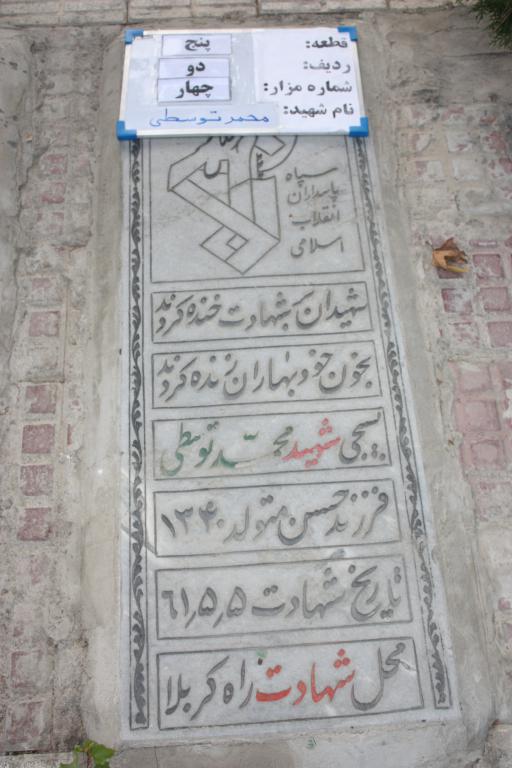 قطعه: پنج
ردیف: دو
شماره مزار: چهار
نام شهید: محمد توسطی
سپاه
پاسداران
انقلاب
اسلامی
شهیدان بشهادت خنده کردند
بخون خود بهاران زنده کردند
بسیجی شهید محمد توسطی
فرزند حسن متولد ۱۳۴۰
تاریخ شهادت ۶۱٫۵٫۵
محل شهادت راه کربلا